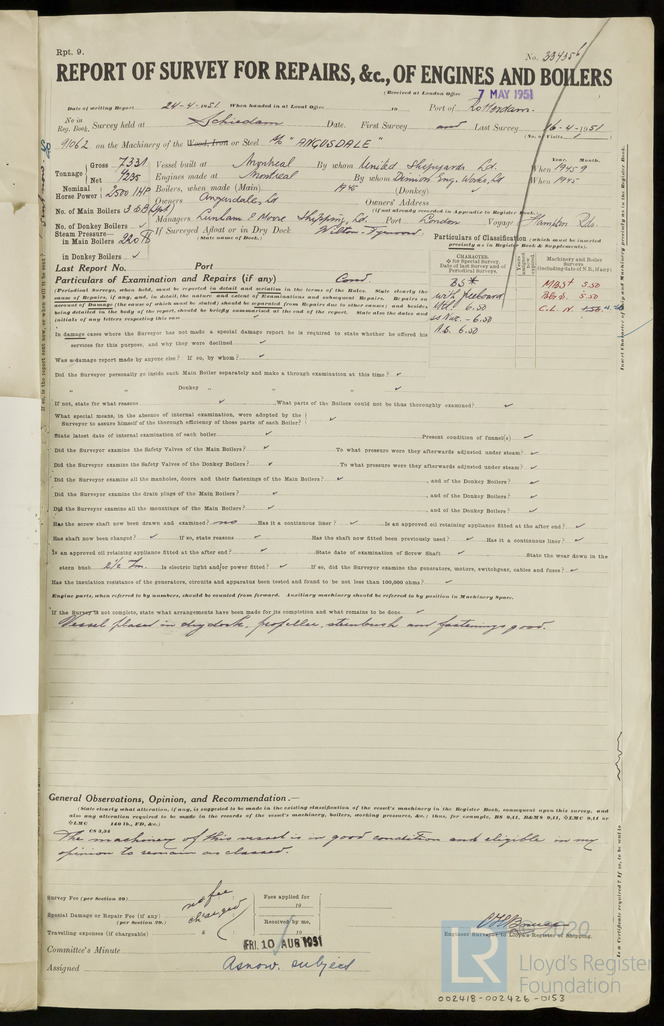 Rpt. 9.
No. 33435
REPORT OF SURVEY FOR REPAIRS, &c., OF ENGINES AND BOILERS
(Received at London Office 7 MAY 1951
Date of writing Report 24-4-1951 When handed in at Local Office 19 Port of Rotterdam.
No in Reg. Book. Survey held at Schiedam Date. First Survey and Last Survey 16-4-1951
(No. of Visits 1)
91062 on the Machinery of the Wood, Iron or Steel "ANGUSDALE"
Tonnage Gross 7331 Vessel built at Montreal By whom United Shipyards Ld. When 1945 9
Net 4235 Engines made at Montreal By whom Dominion Eng. Works Ld When 1945
Year. Month.
Nominal Horse Power 2500 IHP Boilers, when made (Main) 1945 (Donkey)
No. of Main Boilers 3 Owners Angusdale Ld Owners' Address
(if not already recorded in Appendix to Register Book)
No. of Donkey Boilers Managers Lunham & Moore Shipping Ld. Port London Voyage Hampton Rds.
Steam Pressure— in Main Boilers 220 lb If Surveyed Afloat or in Dry Dock
(State name of Dock.)
in Donkey Boilers
Particulars of Classification (which must be inserted precisely as in Register Book & Supplements).
CHARACTER
Machinery and Boiler Surveys
(including date of N.B., if any)
BS*
with freeboard
MBS* 5.50
6.50
Last Report No. Port
Particulars of Examination and Repairs (if any) Cond
(Periodical Surveys, when held, must be reported in detail and seriatim in the terms of the Rules. State clearly the cause of Repairs, if any, and, in detail, the nature and extent of Examinations and subsequent Repairs. Repairs on account of Damage (the cause of which must be stated) should be separated from Repairs due to other causes; and besides being detailed in the body of the report, should be briefly summarised at the end of the report. State also the dates and initials of any letters respecting this case
In damage cases where the Surveyor has not made a special damage report he is required to state whether he offered his
services for this purpose, and why they were declined
Was a damage report made by anyone else? If so, by whom?
Did the Surveyor personally go inside each Main Boiler separately and make a thorough examination at this time?
" " Donkey " " "
If not, state for what reasons What parts of the Boilers could not be thus thoroughly examined?
What special means, in the absence of internal examination, were adopted by the
Surveyor to assure himself of the thorough efficiency of those parts of each Boiler?
State latest date of internal examination of each boiler Present condition of funnel(s)
Did the Surveyor examine the Safety Valves of the Main Boilers? To what pressure were they afterwards adjusted under steam?
Did the Surveyor examine the Safety Valves of the Donkey Boilers? To what pressure were they afterwards adjusted under steam?
Did the Surveyor examine all the manholes, doors and their fastenings of the Main Boilers? and of the Donkey Boilers?
Did the Surveyor examine the drain plugs of the Main Boilers? and of the Donkey Boilers?
Did the Surveyor examine all the mountings of the Main Boilers? and of the Donkey Boilers?
Has the screw shaft now been drawn and examined? no Has it a continuous liner? Is an approved oil retaining appliance fitted at the after end?
Has shaft now been changed? If so, state reasons Has the shaft now fitted been previously used? Has it a continuous liner?
Is an approved oil retaining appliance fitted at the after end? State date of examination of Screw Shaft State the wear down in the
stern bush 2½ Is electric light and/or power fitted? If so, did the Surveyor examine the generators, motors, switchgear, cables and fuses?
Has the insulation resistance of the generators, circuits and apparatus been tested and found to be not less than 100,000 ohms?
Engine parts, when referred to by numbers, should be counted from forward. Auxiliary machinery should be referred to by position in Machinery Space.
If the Survey is not complete, state what arrangements have been made for its completion and what remains to be done
Vessel placed in drydock, propeller, sternbush and fastenings good.
General Observations, Opinion, and Recommendation.—
(State clearly what alteration, if any, is suggested to be made in the existing classification of the vessel's machinery in the Register Book, consequent upon this survey, and
The machinery of this vessel is in good condition and eligible in my
opinion to remain as classed.
Survey Fee (per Section 29) no fee Fees applied for
Special Damage or Repair Fee (if any) (per Section 29.) charged 19
Received by me,
Travelling expenses (if chargeable) £ 19
Engineer Surveyor to Lloyd's Register of Shipping.
Committee's Minute FRI. 10 AUG 1951
Assigned As now. subject
© 2020
LR
Lloyd's Register
Foundation
002418-002426-0153